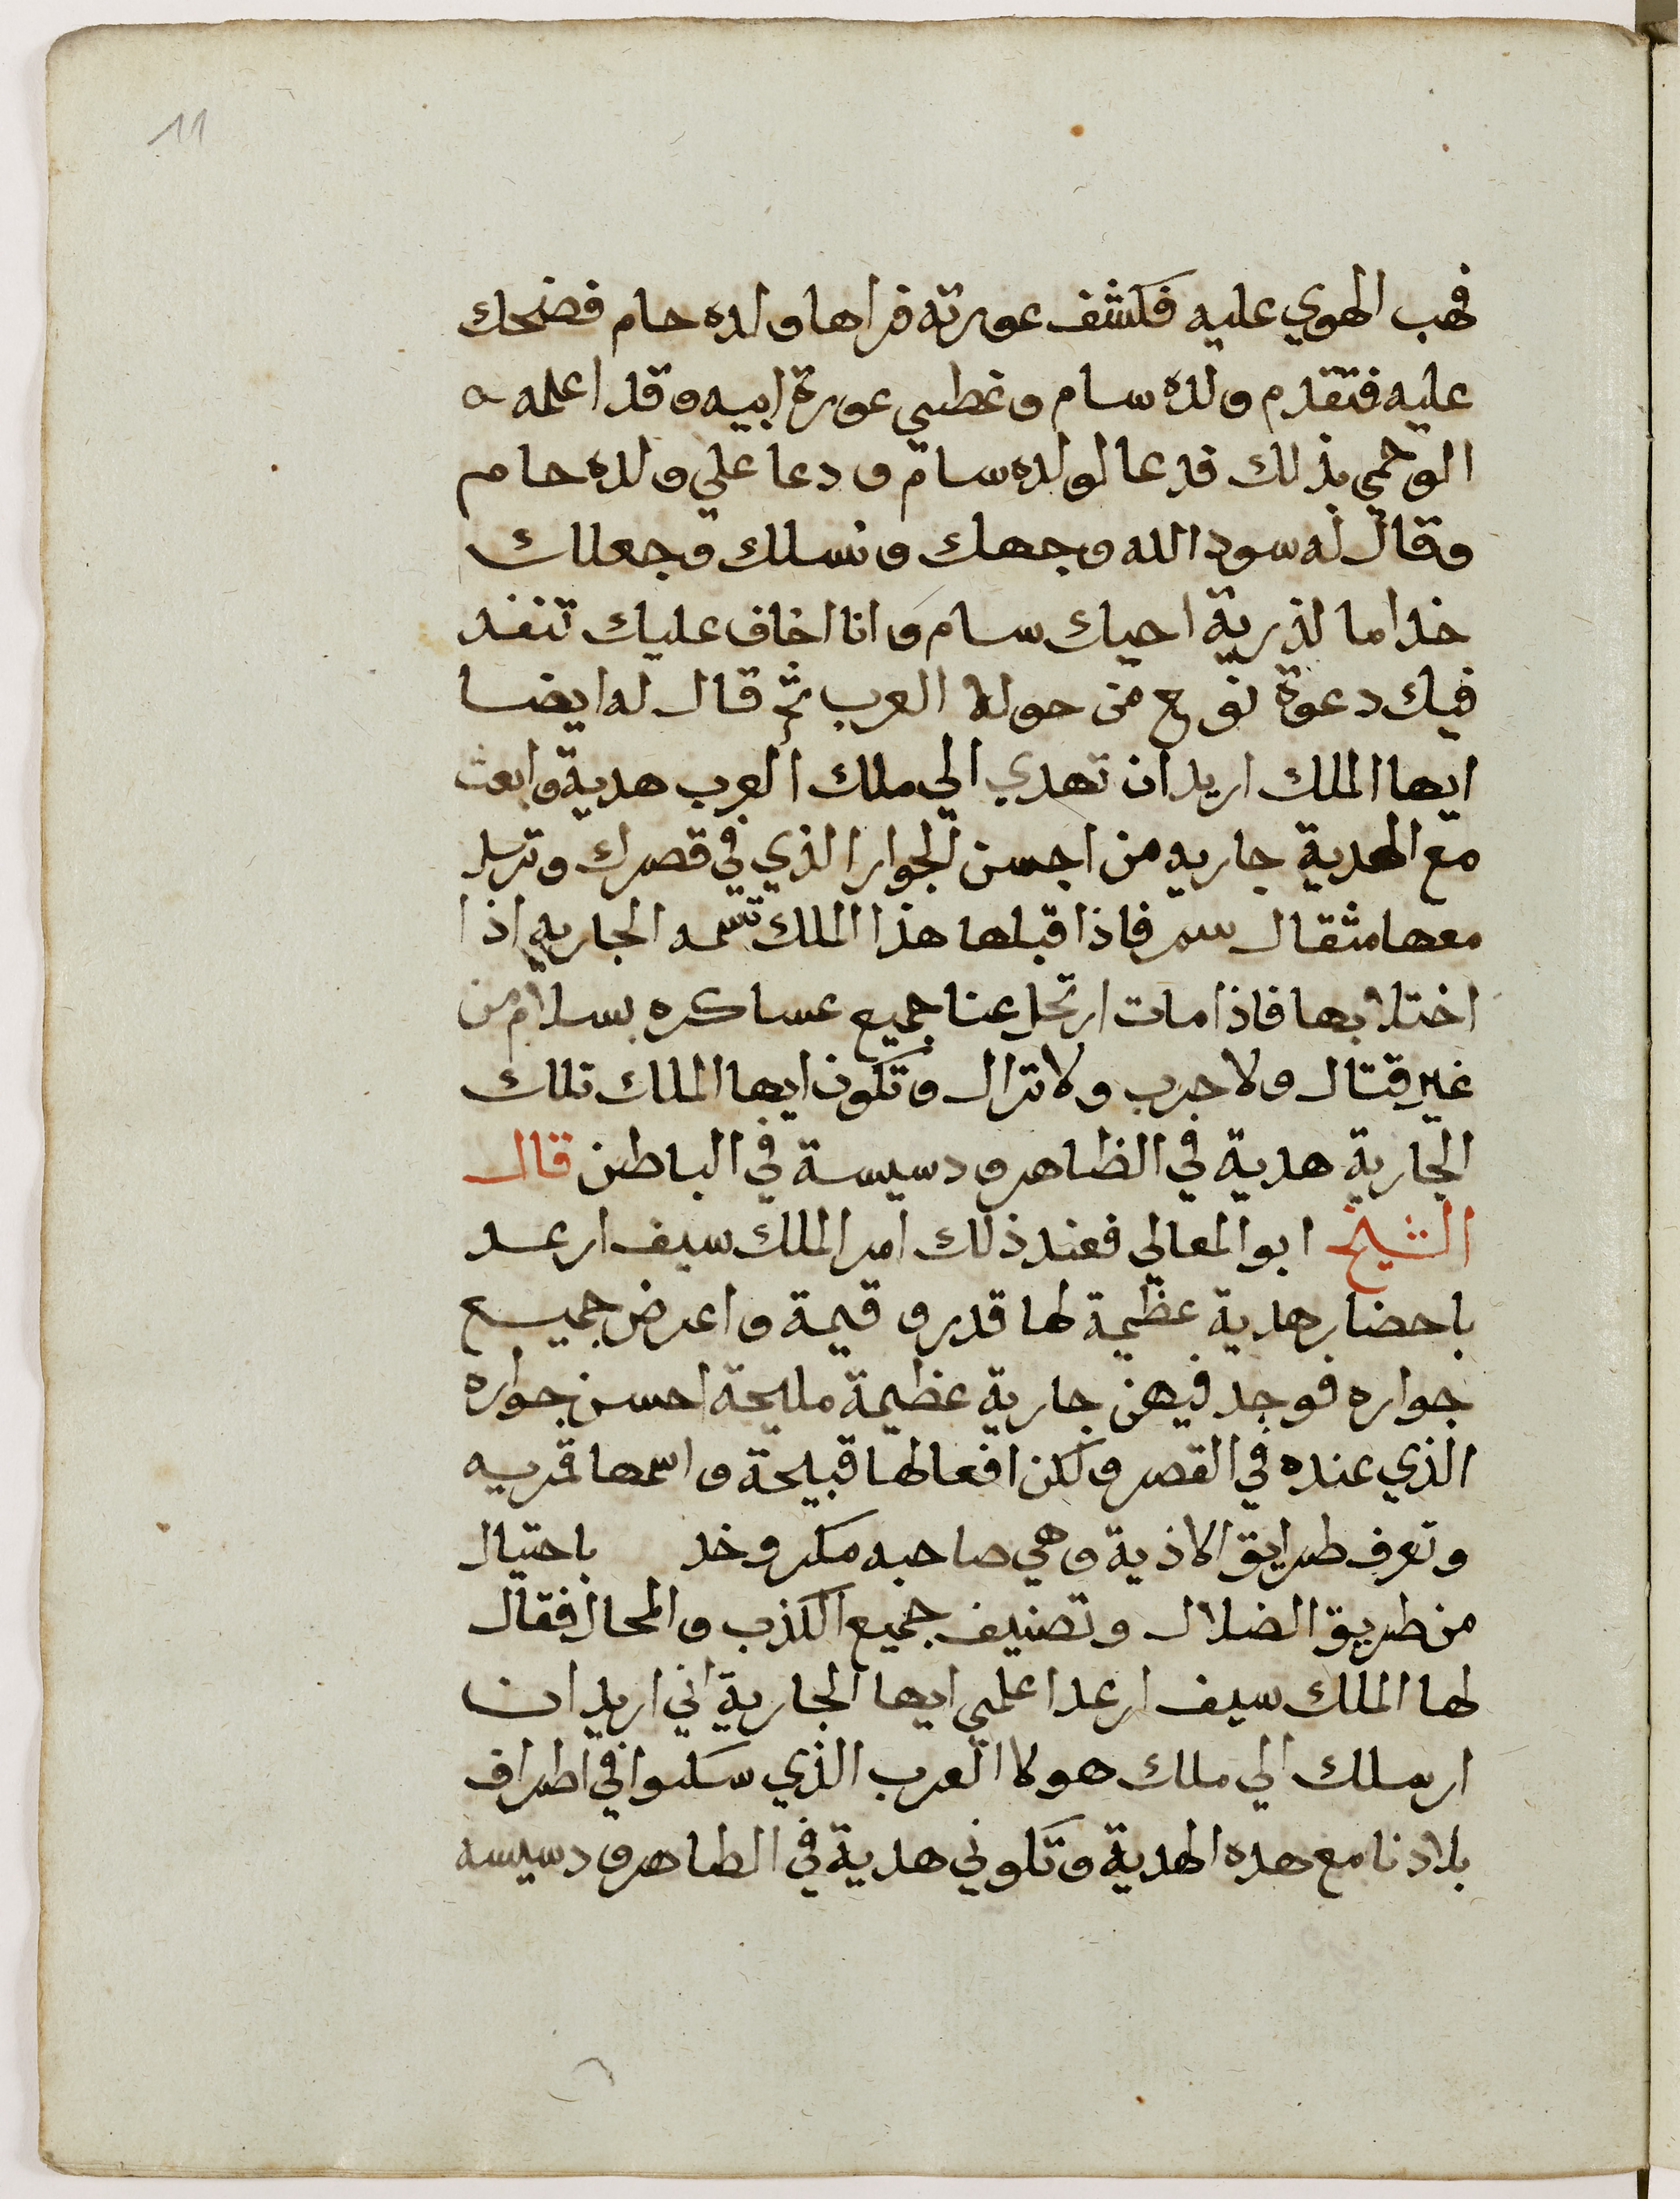 11
فهب الهوي عليه فكشف عورته فراها ولده حام فضحك
عليه فتقدم ولده سام وغطي عورة ابيه وقد اعلمه
الوحي بذلك فدعا لولده سام ودعا علي ولده حام
وقال له سود الله وجهك ونسلك وجعلك
خداما لذرية اخيك سام وانا اخاف عليك تنفد
فيك دعوة نوح من حولة العرب ثم قال له ايضا
ايها الملك اريد ان تهدي الي ملك العرب هدية وابعث
مع الهدية جاريه من احسن الجوار الذي في قصرك وترسل
معها مثقال سم فاذا قبلها هذا الملك تسمه الجاريه اذا
اختلا بها فاذا مات ارتحل عنا جميع عساكره بسلام من
غير قتال ولا حرب ولا نزال وتكون ايها الملك تلك
الجارية هدية في الظاهر ودسيسة في الباطن قال
الشيخ ابو المعالي فعند ذلك امر الملك سيف ارعد
باحضار هدية عظيمة لها قدر وقيمة واعرض جميع
جواره فوجد فيهن جارية عظيمة مليحة احسن جواره
الذي عنده في القصر ولكن افعالها قبيحة واسمها قمريه
وتعرف طرايق الاذية وهي صاحبه مكر وخد باحتيال
من طريق الضلال وتصنيف جميع الكذب والمحال فقال
لها الملك سيف ارعد اعلمي ايها الجارية اني اريد ان
ارسلك الي ملك هولا العرب الذي سكنوا في اطراف
بلادنا مع هده الهدية وتكوني هدية في الطاهر ودسيسه